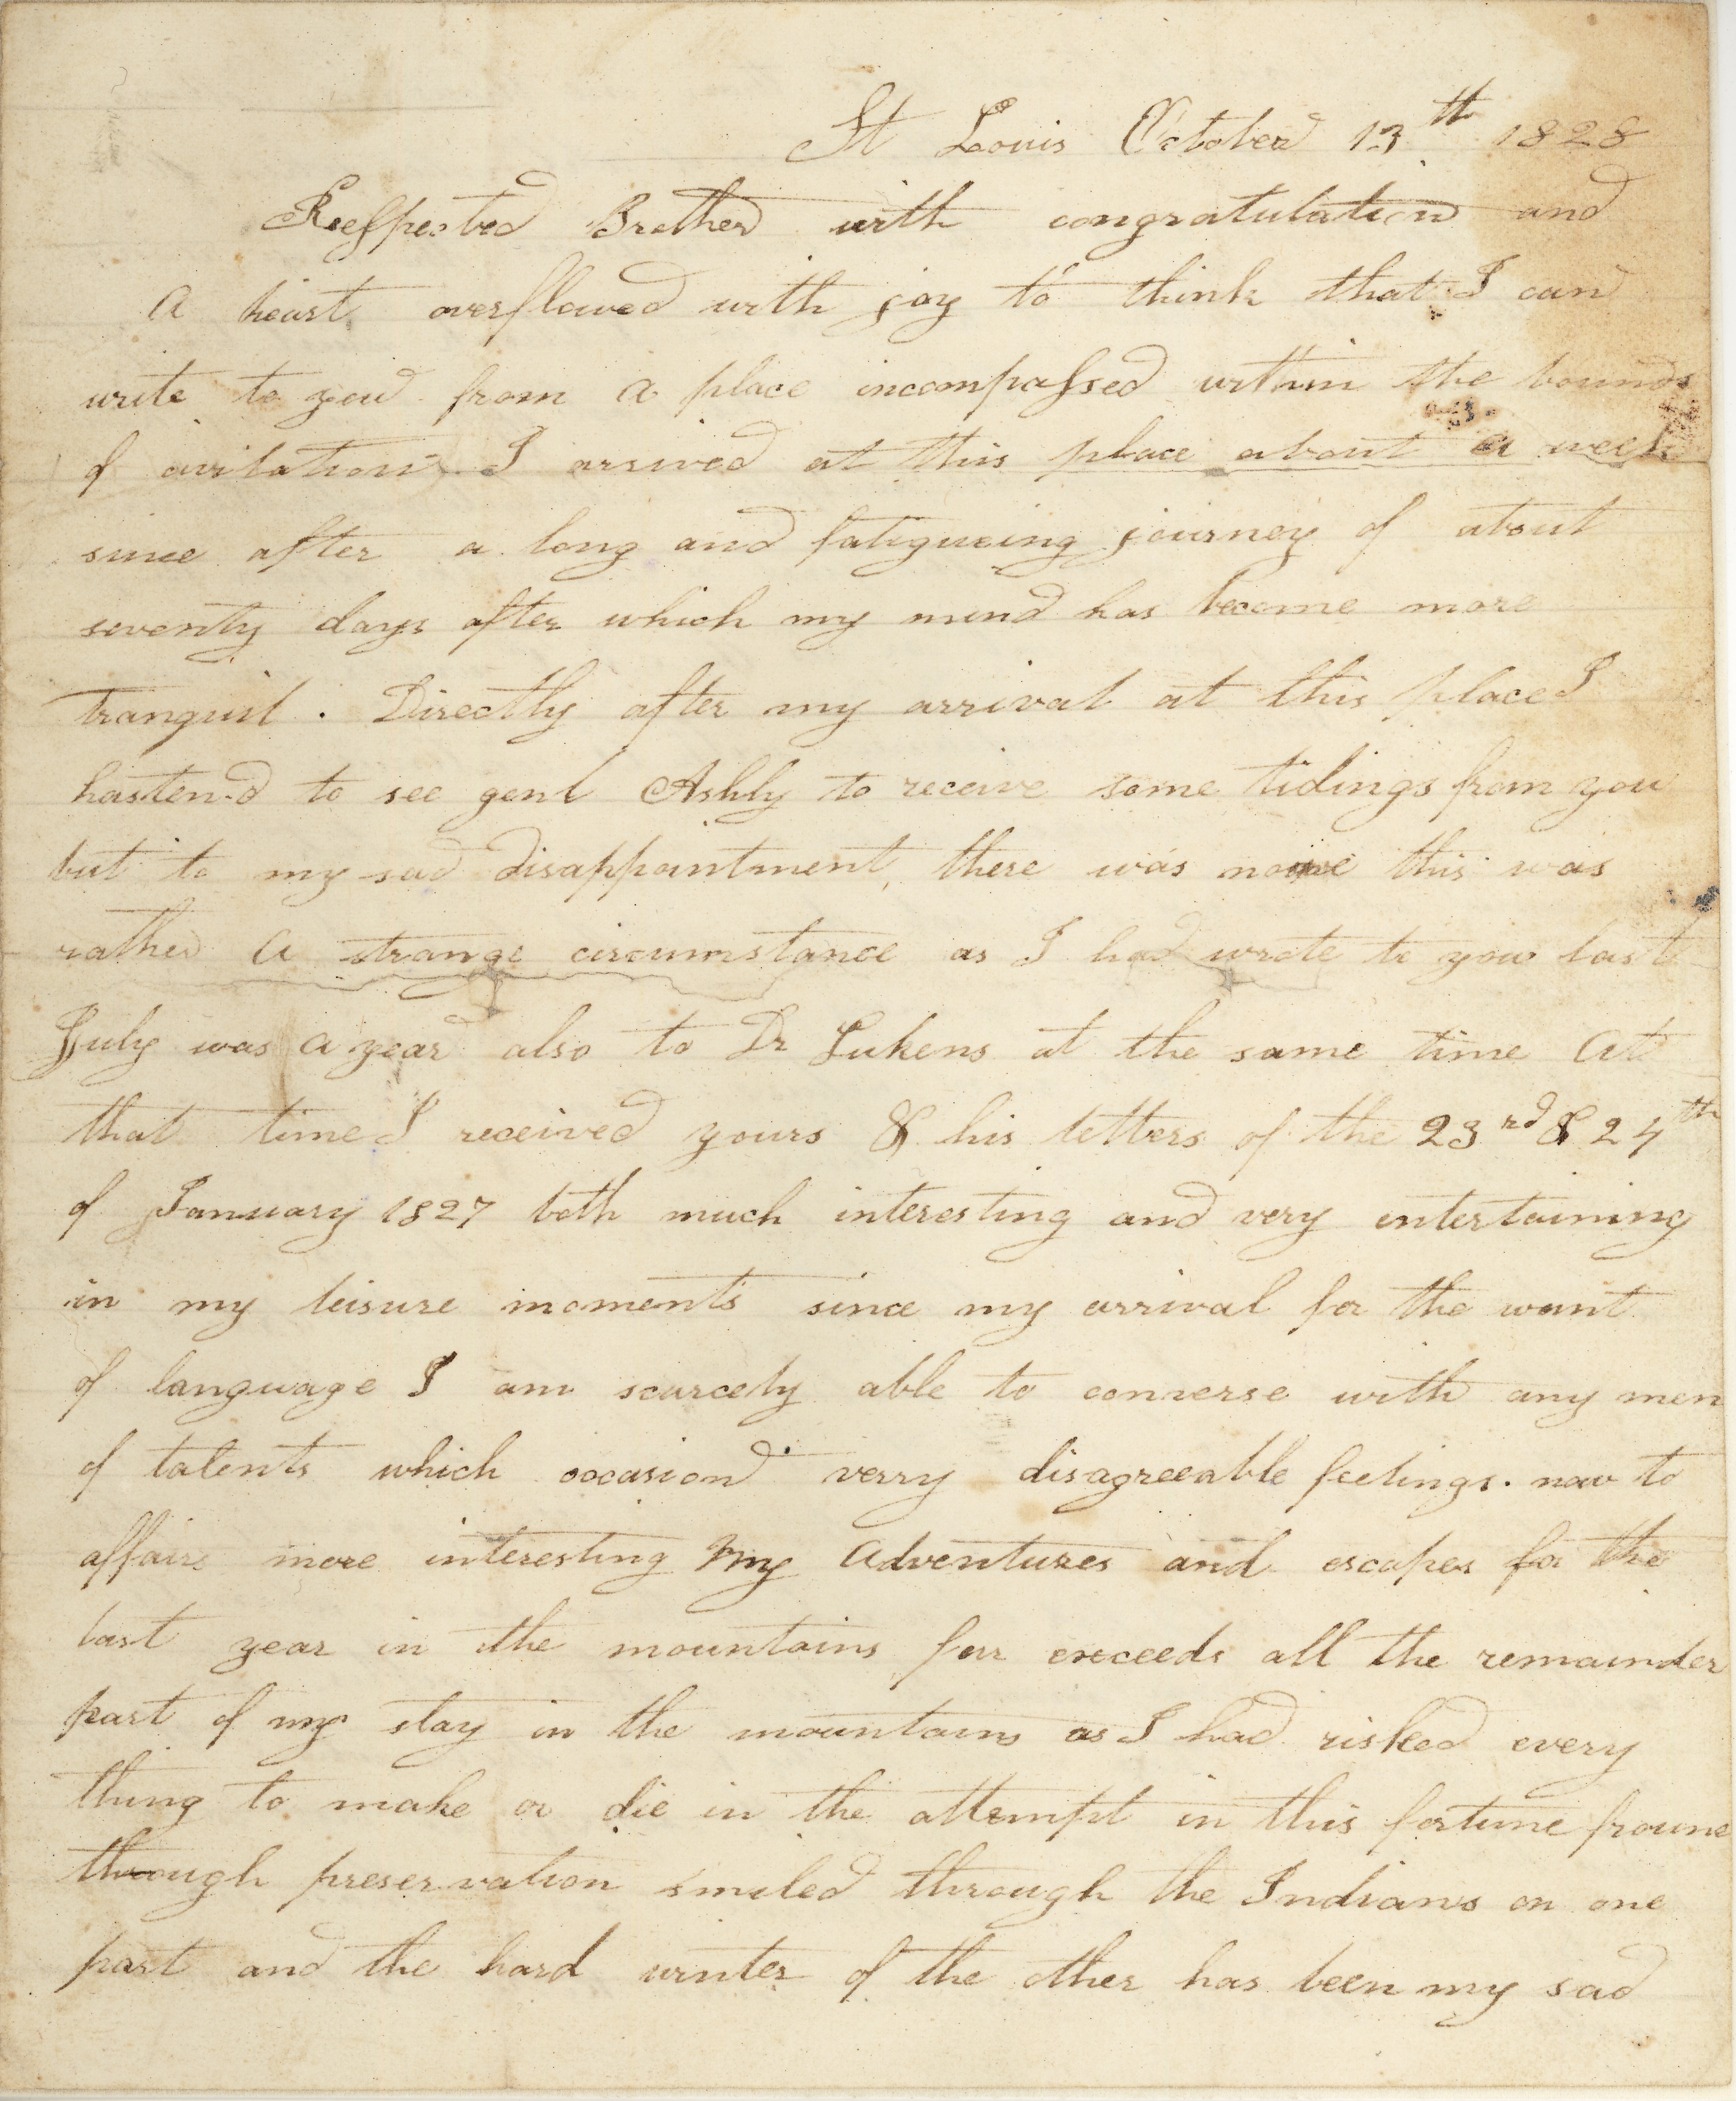 St Louis October 13th 1828
Reespected Brother with congratulation and
A heart overflowed with joy to think that I can
write to you from a place incompassed within the bounds
of civilation I arrived at this place about a week
since after a long and fatigueing journey of about
seventy days after which my mind has become more
tranquil. Directly after my arrival at this place I
hastend to see genl Ashly to receive some tidings from you
but to my sad disappointment, there was none this was
rather A strange circumstance as I had wrote to you last
July was A year also to Dr Lukens at the same time At
that time I received yours & his letters of the 23rd & 24th
of January 1827 both much interesting and very entertaining
in my leisure moments since my arrival for the want
of language I am scarcely able to converse with any men
of talents which occasion verry disagreeable feelings. now to
affairs more interesting My Adventures and escapes for the
last year in the mountains far exceeds all the remainder
part of my stay in the mountains as I had risked every
thing to make or die in the attempt in this fortune froune
through preservation smiled through the Indians on one
part and the hard winter of the other has been my sad